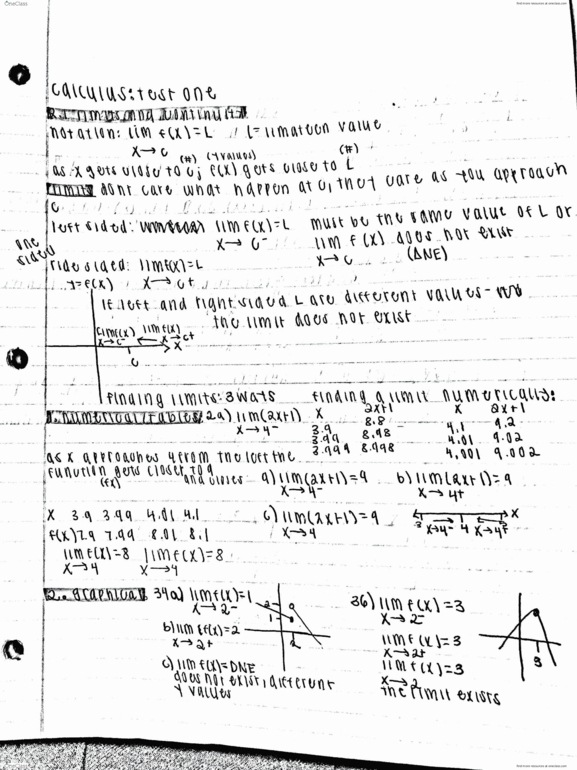 OneClass
find more resources at oneclass.com
calculus: test one
2.1 limits and continuity
notation: lim f(x) = L // L = limatoon value
x → c
(#) (y values) (#)
as x gets close to c; f(x) gets close to L
limits dont care what happen at c, they care as you approach
c
left sided: lim f(x) = L must be the same value of L or
x → c⁻ lim f(x) does not exist
one sided
x → c (DNE)
ride sided: lim f(x) = L
x → c+
y = f(x)
If left and right sided L are different values -
the limit does not exist
lim f(x) lim f(x)
x → c⁻ x → c+ x
c
finding limits: 3 ways finding a limit numerically:
1. numerical/tables 2a) lim (2x+1) x 2x+1 x 2x+1
x → 4⁻ 3.9 8.8 4.1 9.2
3.99 8.98 4.01 9.02
3.999 8.998 4.001 9.002
as x approaches 4 from the left the
function gets closer to 9
(fx) and closer
a) lim (2x+1) = 9 b) lim (2x+1) = 9
x → 4⁻ x → 4+
x 3.9 3.99 4.01 4.1 c) lim (2x+1) = 9 x
x → 4 3 x→4⁻ 4 x→4+
f(x) 7.9 7.99 8.01 8.1
lim f(x) = 8 lim f(x) = 8
x → 4 x → 4
2. graphical 34a) lim f(x) = 1 2 1 2
x → 2⁻
b) lim f(x) = 2
x → 2+
c) lim f(x) = DNE
does not exist, different
y values
36) lim f(x) = 3
x → 2⁻
lim f(x) = 3
x → 2+
lim f(x) = 3
x → 2
the limit exists
3
find more resources at oneclass.com